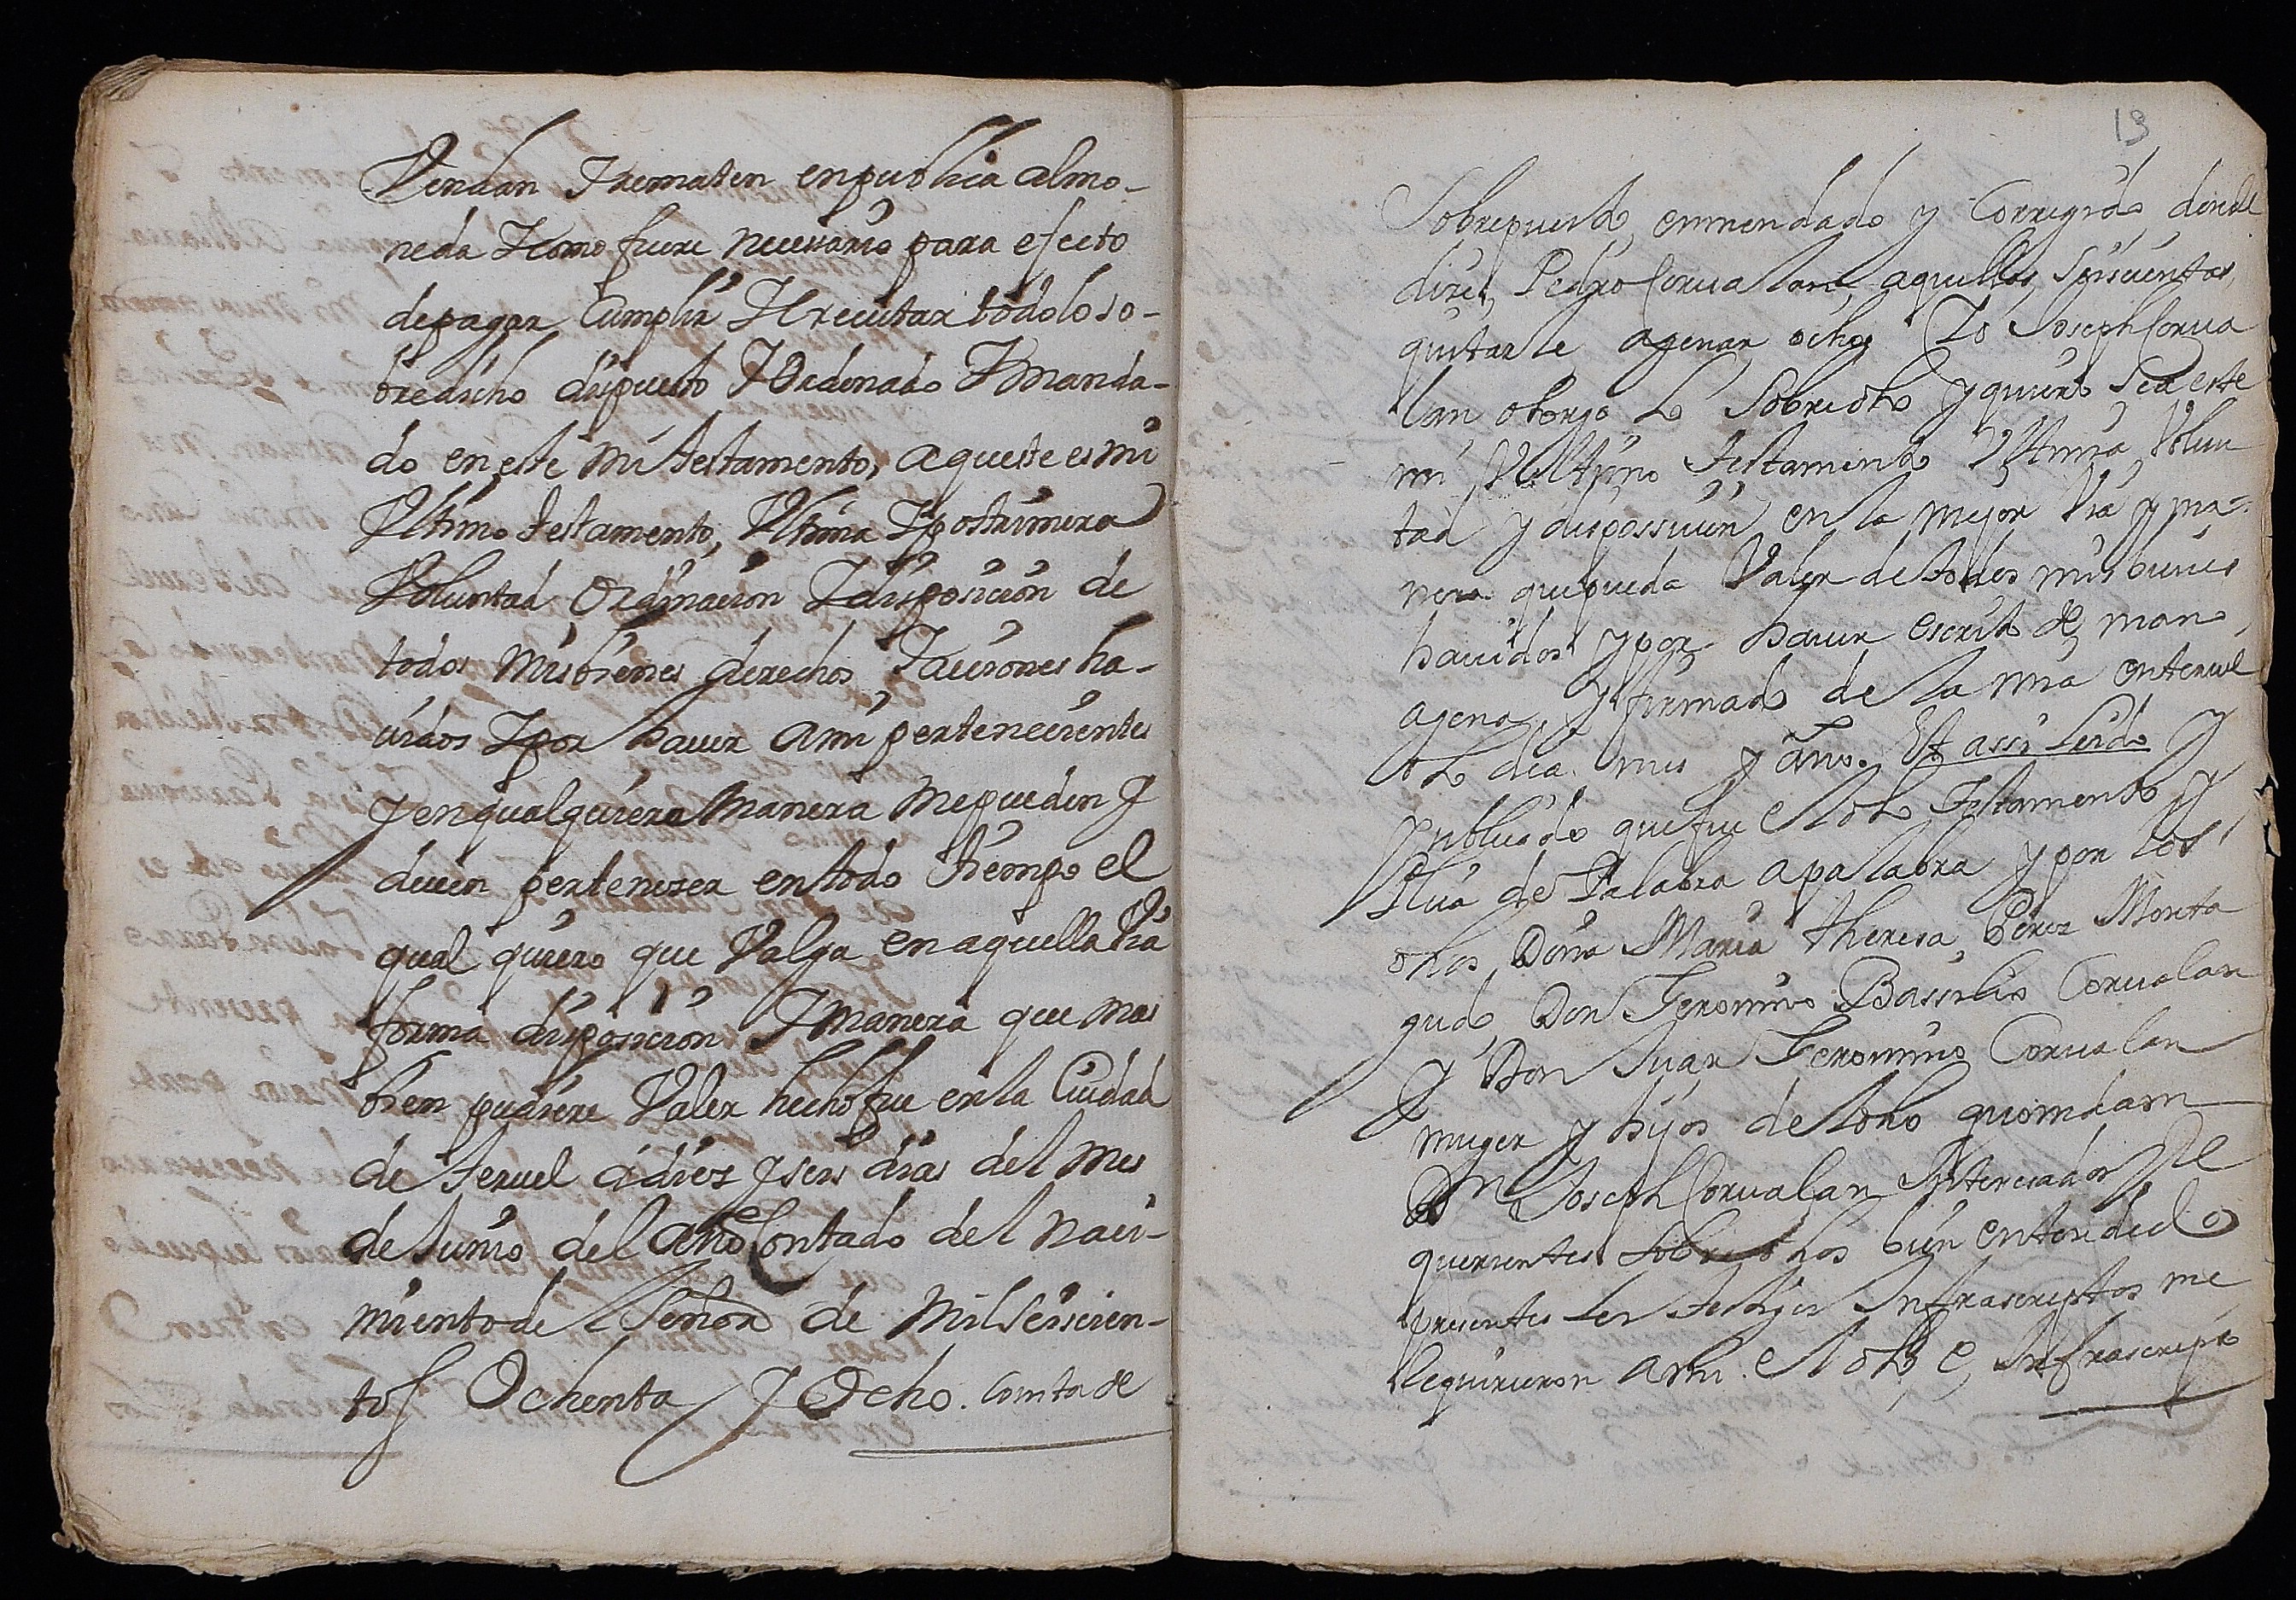 Vendan Y rematen en publica almo-
neda Y como fuere necessario para efecto
de pagar Cumplir Y Executar todo lo so-
bredicho dispuesto Y Ordenado Y manda-
do en este mi testamento, aqueste es mi
Ultimo testamento, Ultima Y postrimera
Voluntad Ordinacion Y disposicion de
todos mis bienes derechos Y acciones ha-
uidos Y por hauer a mi pertenecientes
y en qualquiera manera me pueden Y
deuen pertenezer en todo tiempo el
qual quiero que Valga en aquella Via
forma disposicion Y manera que mas
bien pudiere Valer hecho fue en la Ciudad
de teruel a diez y seis dias del mes
de Junio del año Contado del naci-
miento de Señor de Mil Seiscien-
tos Ochenta Y Ocho. Consta de
13
Sobrepuesto, enmendado y Corregido donde
dice, Pedro Corualan, aquellas, Seiscientas,
quitarle agenar ocho, Yo Joseph Corua
lan otorgo lo Sobredho y quiero sea este
mi Vltimo Testamento Vltima Volun
tad y dispossicion en la mejor Via y ma-
nera que pueda Valer de todos mis bienes
hauidos y por hauer escrito de mano
agena, y firmado de la mia en teruel
dho dia mes y año. Et assi leido y
publicado que fue el dho Testamento y
Plica de Palabra a palabra y por los
dhos Doña Maria theresa Perez Monta
gudo, Don Geronimo Bassilio Corualan
y Don Juan Geronimo Corualan
muger y hijos del dho quondam
Dn Joseph Corualan Interesados Re
querientes sobredhos bien entendido
presentes los testigos Infrascriptos me
Requirieron a mi el dho e Infrascripto